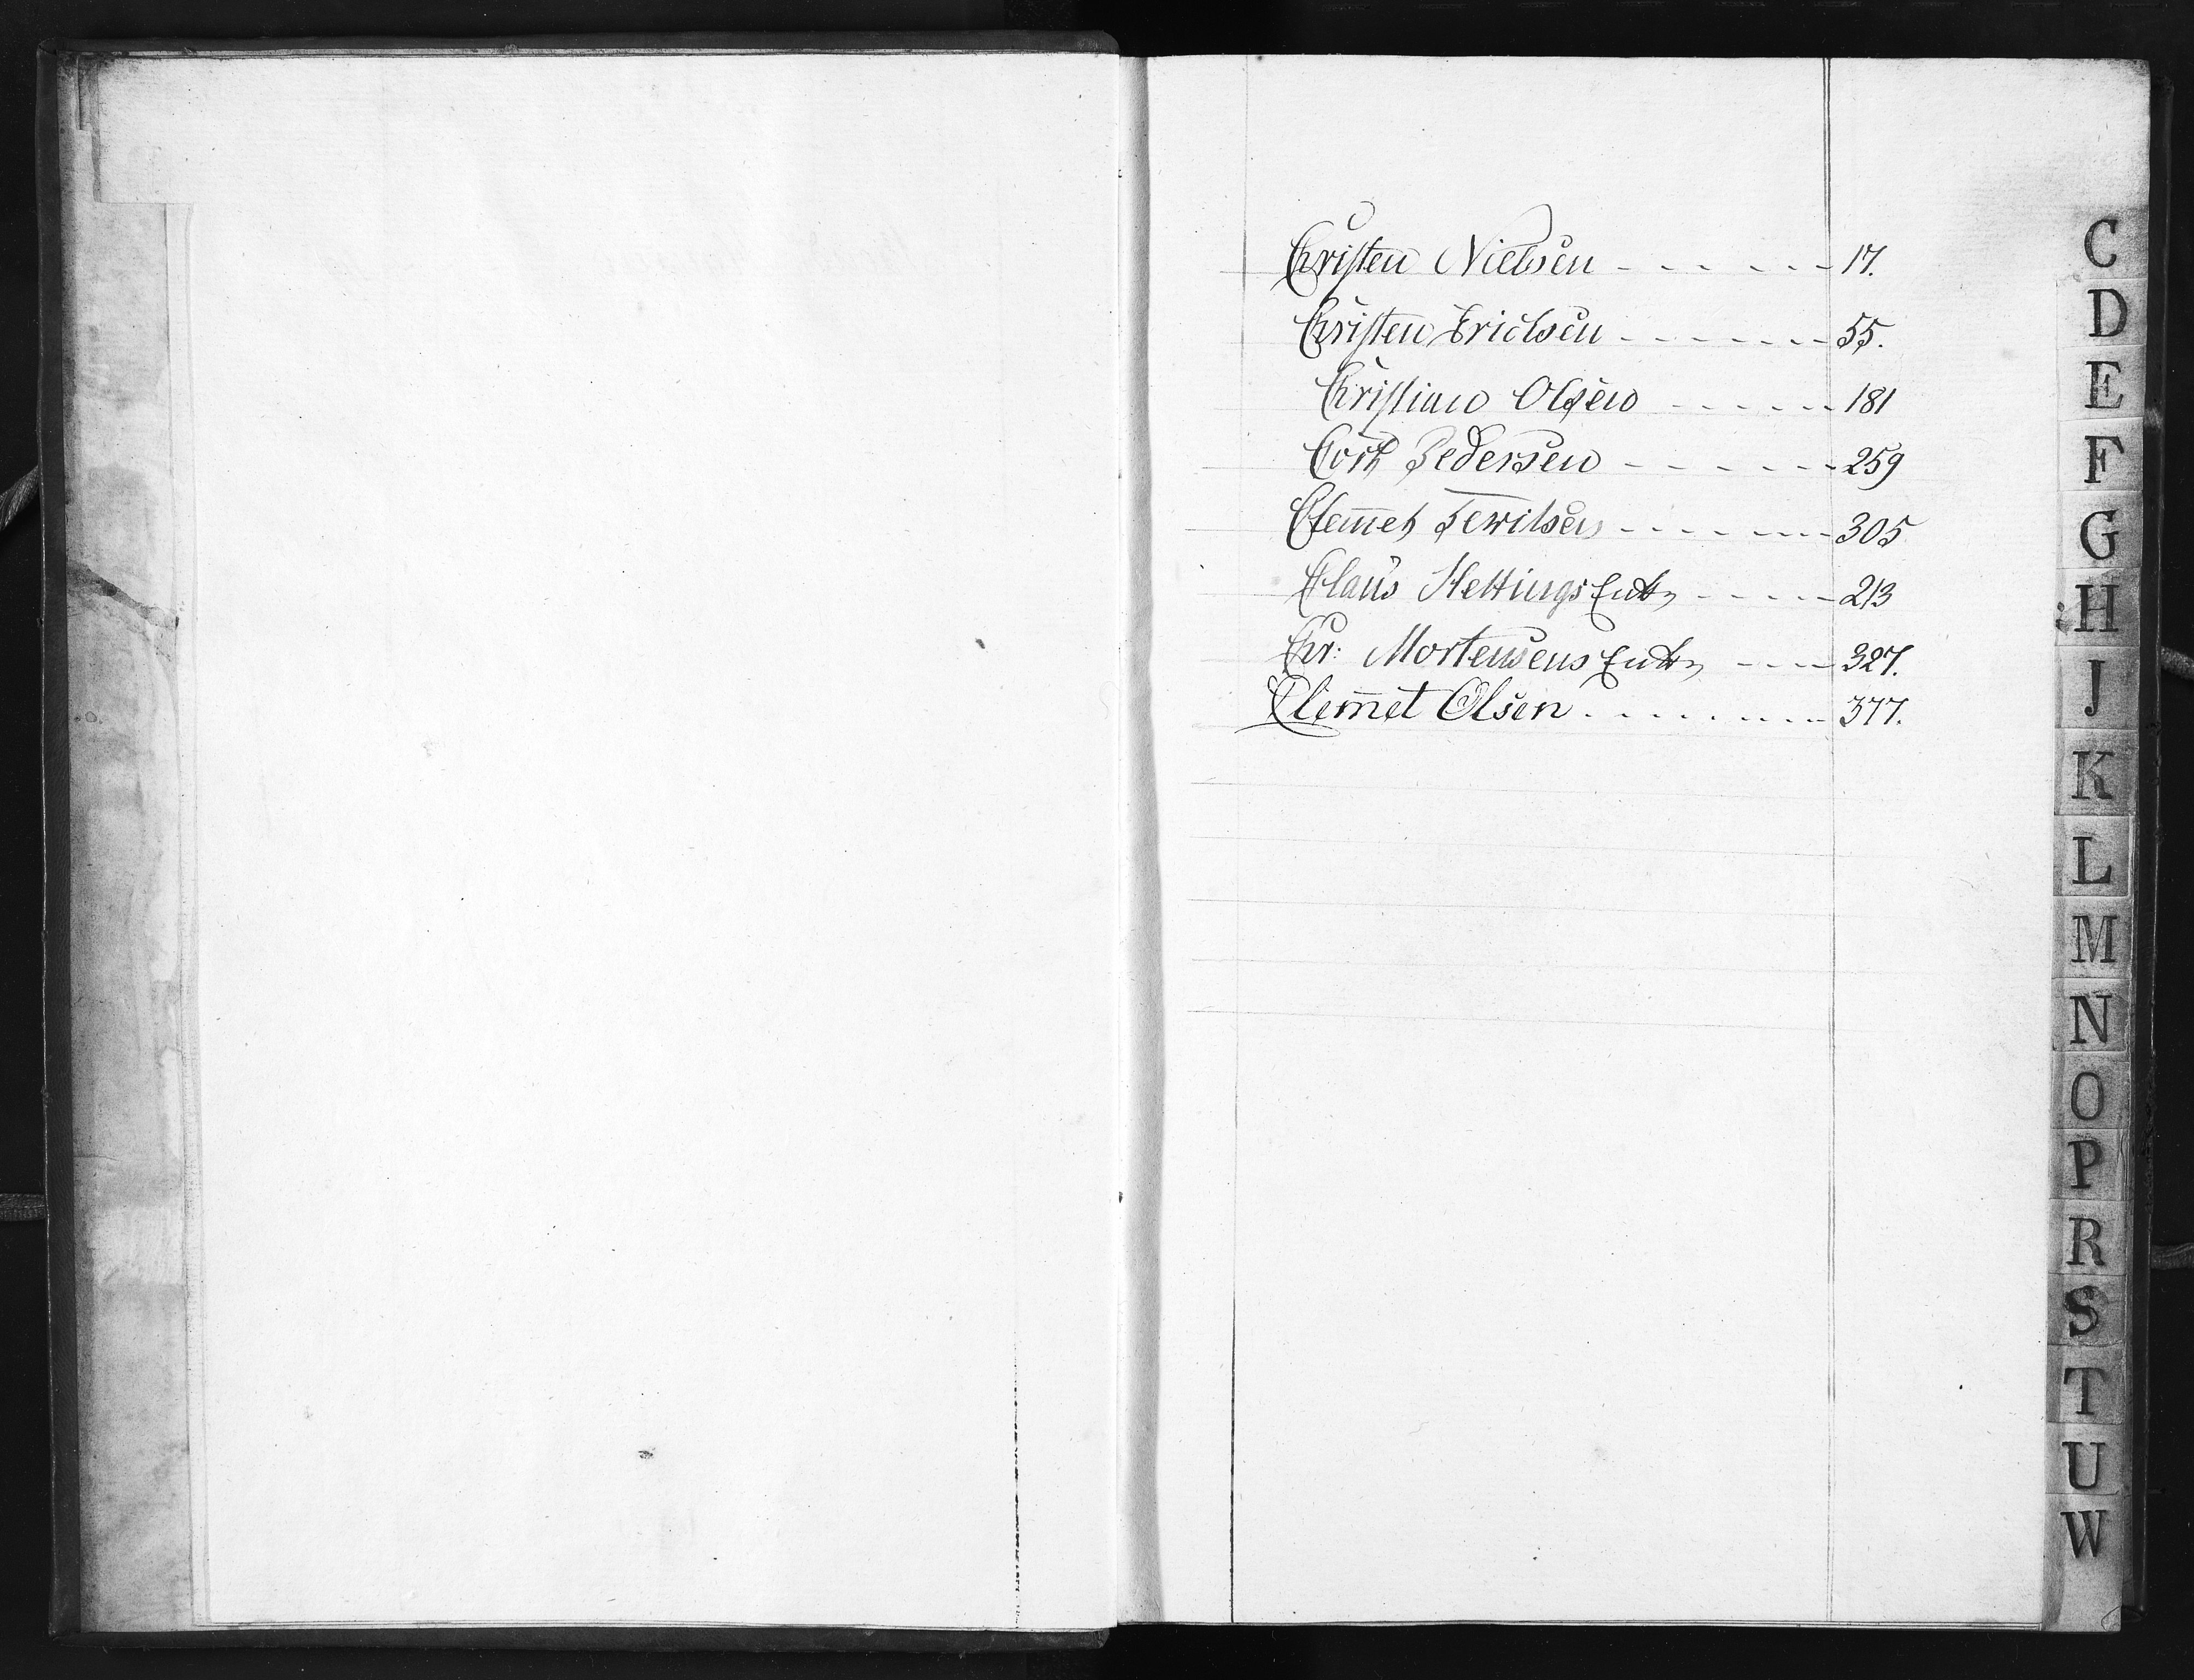 Christen Nielsen - - - - - - 17.
Christen Ericksen - - - - - - - 55.
Christian Olsen - - - - - - 181
Cort Pedersen - - - - - - 259
Clem̄et - - - - - - - 305
Claus Hettings Enke - - - - - 213
Chr: Mortensens Enke - - - - 327.
Clem̄et Olsen . . . . . . . . . . . 377.
C
D
E
F
G
H
J
K
L
M
N
O
P
R
S
T
U
W